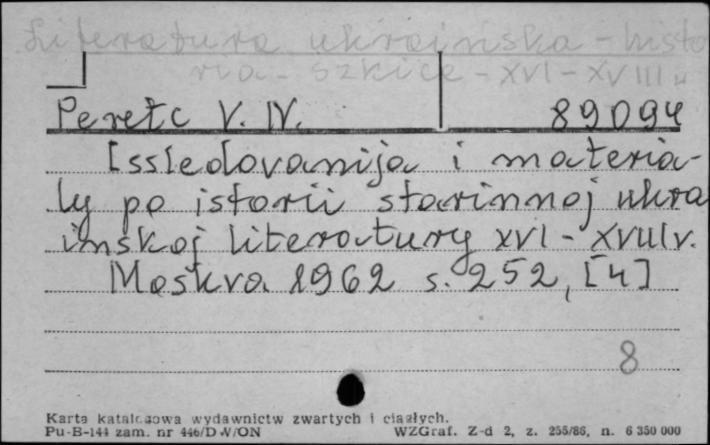 Literatura ukraińska - histo
ria - szkice - XVI - XVIII w
Peretc V. N. 89094
Issledovanija i materia-
ly po istorii starinnoj ukra
inskoj literatury XVI - XVIII v.
Moskva 1962 s. 252, [4]
8
Karta katalogowa wydawnictw zwartych i ciągłych.
Pu-B-144 zam. nr 446/D W/ON WZGraf. Z-d 2, z. 255/86, n. 6 350 000